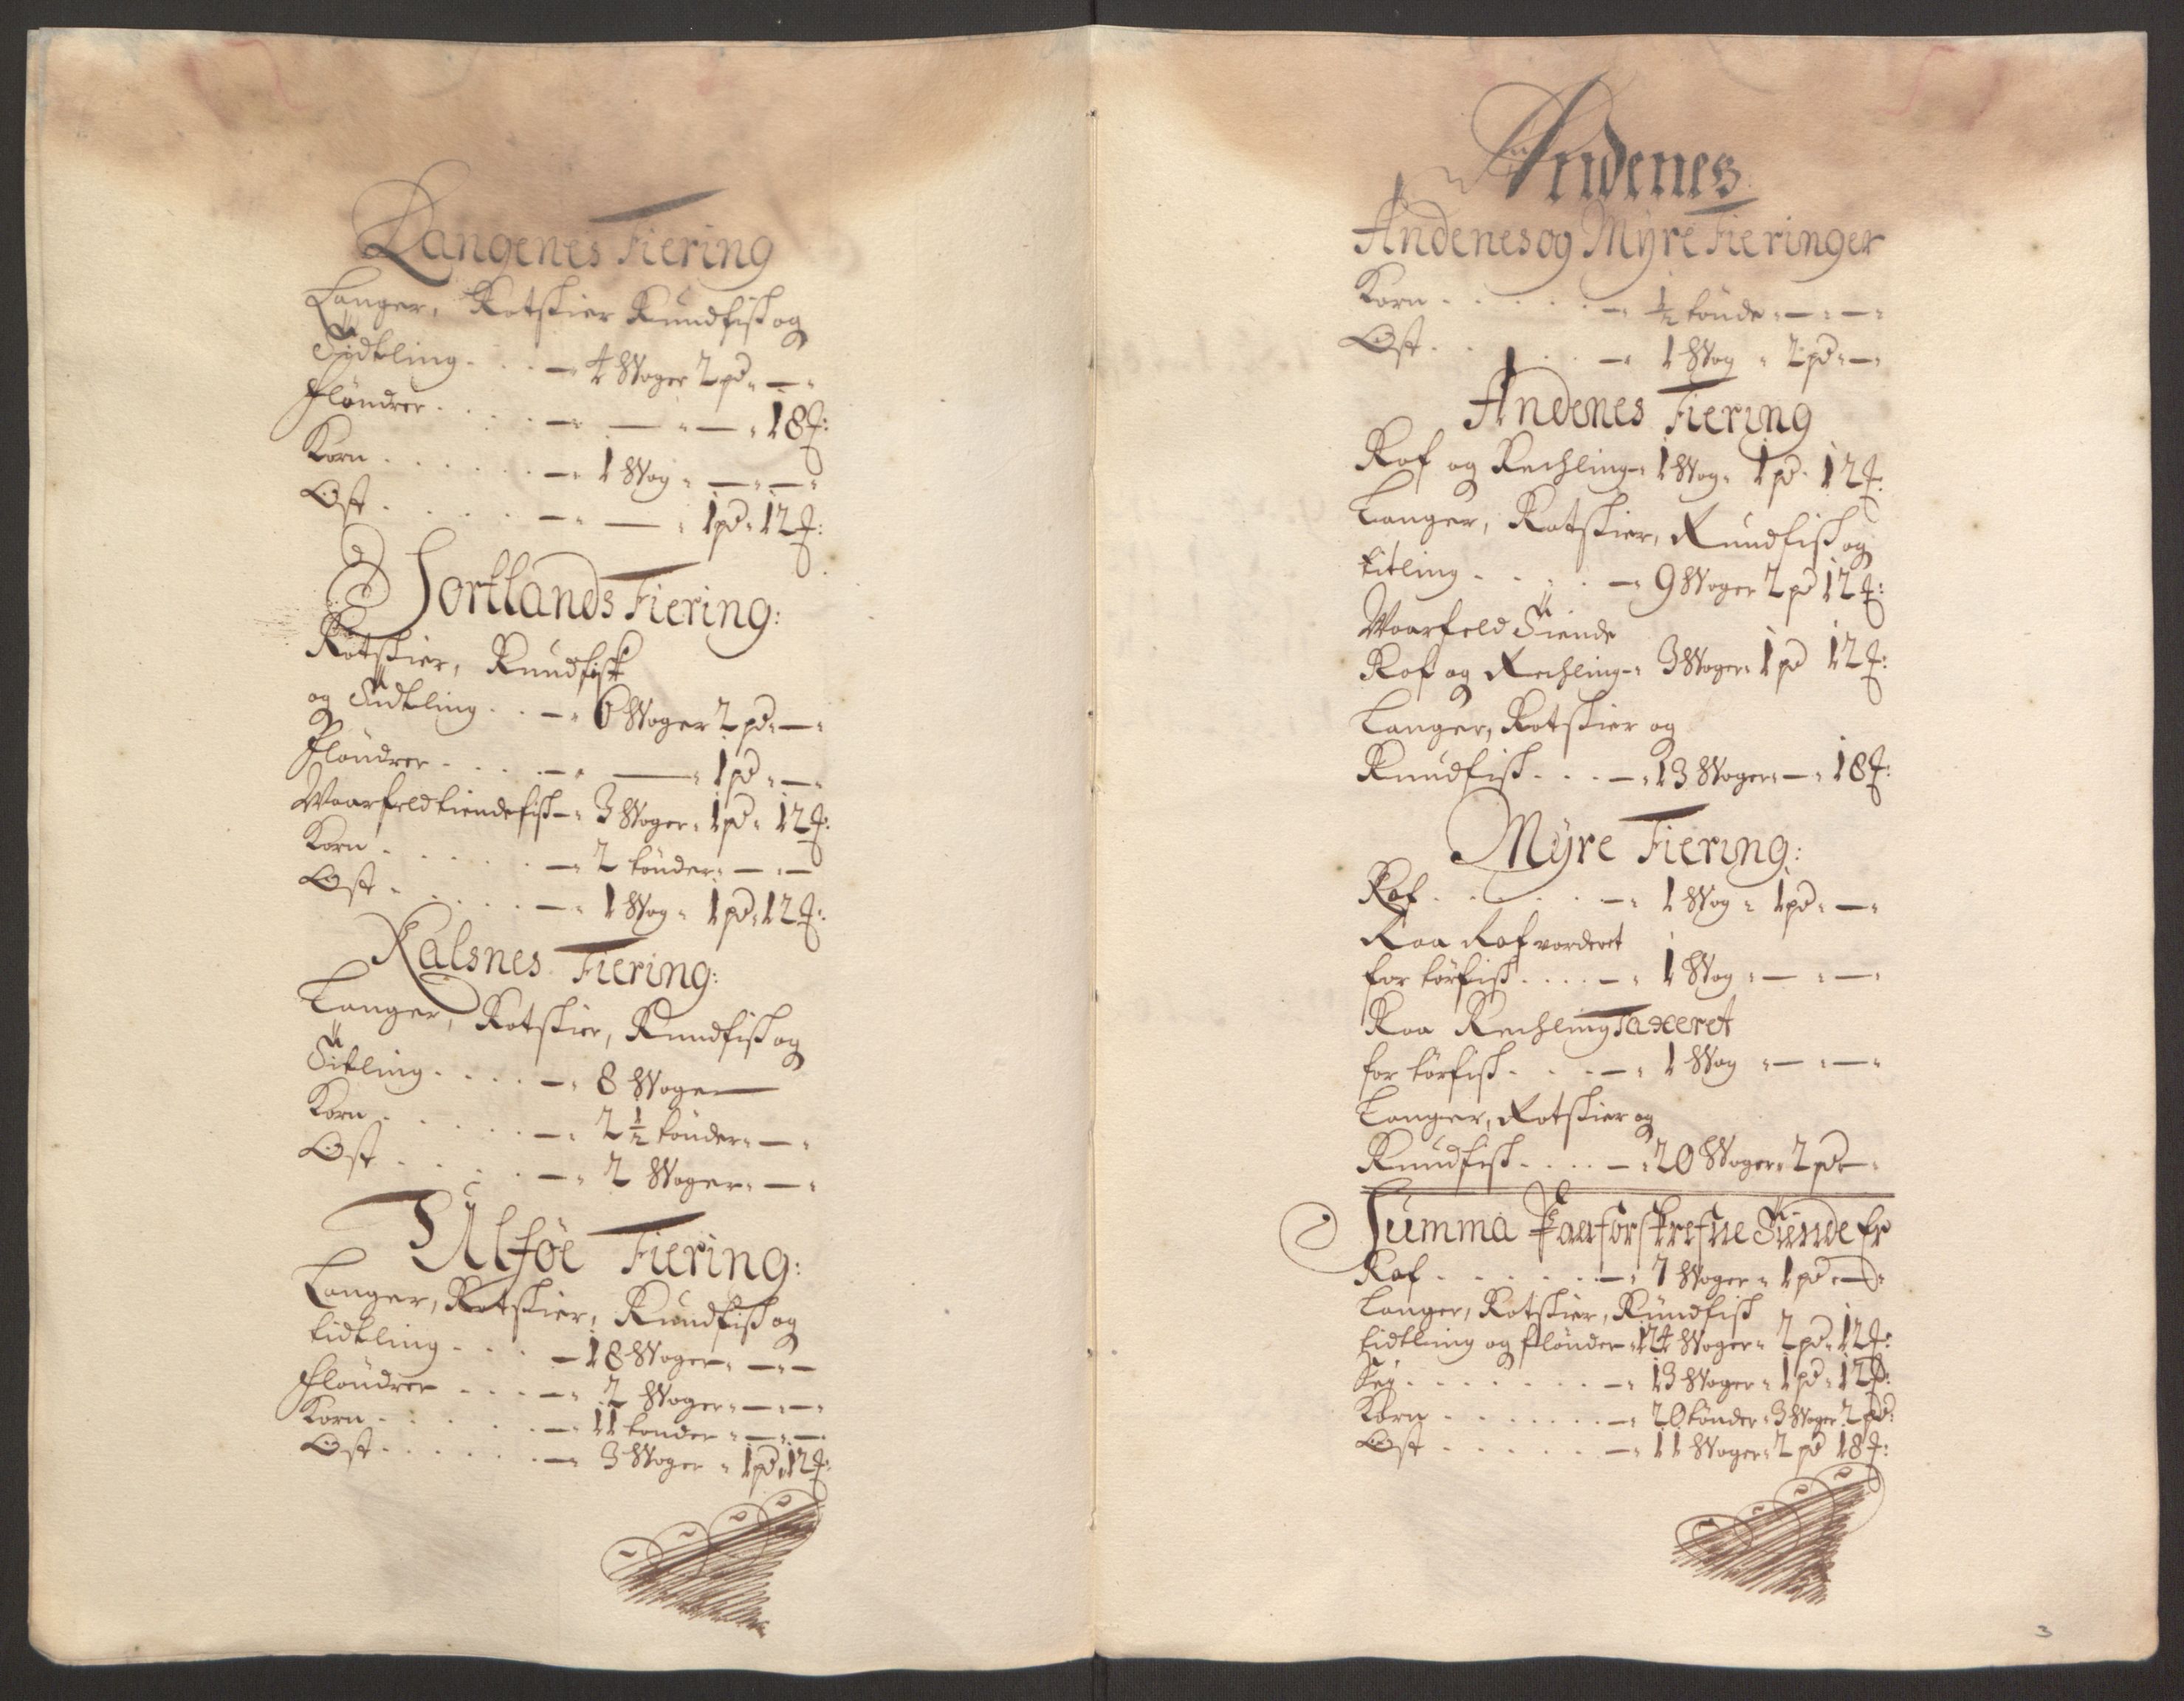 Langenes Fiering
Langer, Rotskier Rundfisk og
Tidtling - - - 4 Woger 2 pd - — -
Flöndrer - - - - — - — - 18 ℔:
Korn - - - - 1 Wog - — - — -
Ost - - - - — - 1 pd - 12 ℔:
Sortlands Fiering:
Rotskier, Rundfisk
og Tidtling - - 6 Woger 2 pd - — -
Flöndrer - - - — - 1 pd - — -
Waarfeld tiende fisk - 3 Woger - 1 pd - 12 ℔:
Korn - - - - 2 tönder - — - —
Ost - - - - 1 Wog - 1 pd - 12 ℔:
Kalsnes Fiering:
Langer, Rotskier, Rundfisk og
Titling - - - - 8 Woger —
Korn - - - - 2 1/2 tönder - — -
Ost - - - - 2 Woger - — -
Ulföe Fiering:
Langer, Rotskier, Rundfisk og
tidtling - - - 18 Woger - — - —
Flöndrer - - - 2 Woger - — - —
Korn - - - - 11 tonder - — - —
Ost - - - - 3 Woger - 1 pd - 12 ℔:
Andenes
Andenes og Myre Fieringer
Korn - - - - 1/2 tönde - — - —
Ost - - - - 1 Wog - 2 pd - —
Andenes Fiering
Raf og Rechling - 1 Wog - 1 pd - 12 ℔:
Langer, Rotskier, Rundfisk og
titling - - - - 9 Woger 2 pd 12 ℔:
Waarfeld Tiende
Raf og Rechling - 3 Woger - 1 pd 12 ℔:
Langer, Rotskier og
Rundfisk - - - 13 Woger - — - 18 ℔:
Myre Fiering:
Raf - - - - 1 Wog - 1 pd - — -
Raa Raf vorderet
for törfisk - - - 1 Wog - — - — -
Raa Rechling Taxeret
for törfisk - - - 1 Wog - — - — -
Langer, Rotskier og
Rundfisk - - - - 20 Woger - 2 pd — -
Summa Paaforskrefne Tiende Er
Raf - - - - 7 Woger - 1 pd - — -
Langer, Rotskier, Rundfisk
tidtling og flönder - 124 Woger - 2 pd - 12 ℔:
Sey - - - - 13 Woger - 1 pd - 12 ℔:
Korn - - - - 20 tönder - 3 Woger 2 pd:
Ost - - - - 11 Woger - 2 pd 18 ℔:
3